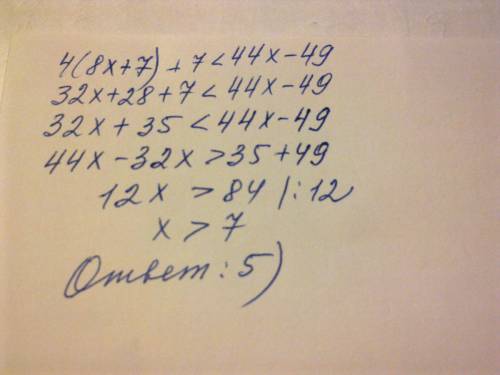 4(8x+7)+7<44x-49
32x+28+7<44x-49
32x+35<44x-49
44x-32x>35+49
12x>84 |:12
x>7
Ответ: 5)